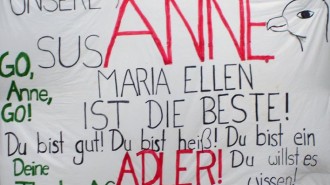 UNSERE
SUSANNE
GO,
Anne,
GO!
MARIA ELLEN
IST DIE BESTE!
Du bist gut! Du bist heiß! Du bist ein
ADLER!
Du willst es
wissen!
Deine